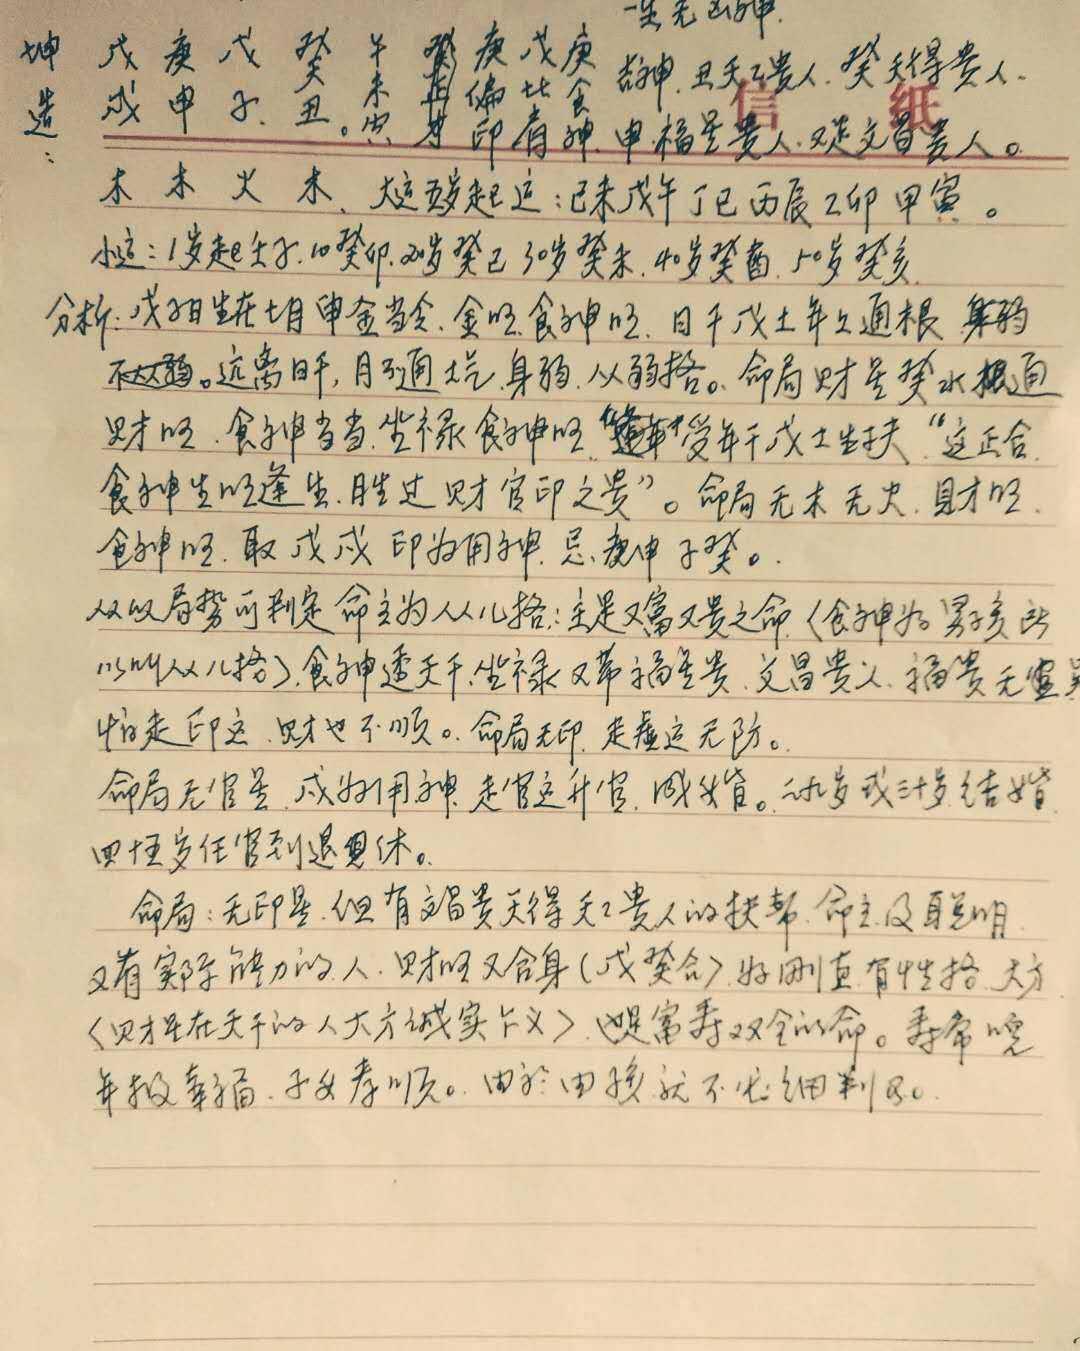 一生无凶神.
坤 戊 庚 戊 癸 午 癸 庚 戊 庚 吉神.丑天乙贵人.癸天得贵人.
造: 戌 申 子.丑。 未 正 偏 比 食 信 纸
空 才 印 肩 神 申.福星贵人.又是文昌贵人。
木 木 火 木、大运五岁起运:己未戊午丁巳丙辰乙卯甲寅。
小运:1岁起壬子.10癸卯.20岁癸巳30岁癸未.40岁癸酉.50岁癸亥
分析:戊子日生在七月申金当令.金旺食神旺.日干戊土年上通根 身弱
不太弱。远离日干,月不通土气.身弱.从弱格。命局财星癸水根通
财旺.食神当当.坐禄食神旺 受年干戊土生扶“这正合.
食神生旺逢生.胜过财官印之贵”。命局无木无火.见财旺.
食神旺.取戊戌印为用神.忌.庚申子癸。.
从以局势可判定命主为从儿格:主是又富又贵之命〈食神为男孩所
以叫从儿格〉.食神透天干.坐禄又带福星贵.文昌贵人.福贵无
怕走印运.财也不顺。命局无印.走 运无防。
命局无官星.戌为用神.走官运升官. 结婚
四十五岁任官到退 休。
命局:无印星.但有文昌贵天得天乙贵人的扶帮.命主及聪明.
又有实际能力的人.财旺又合身(戊癸合).好刚直.有性格.大方
〈财星在天干的人大方诚实 义〉也是富寿双全的命。寿常 晚
年极幸福.子女孝顺。由於 孩就不必细判了。